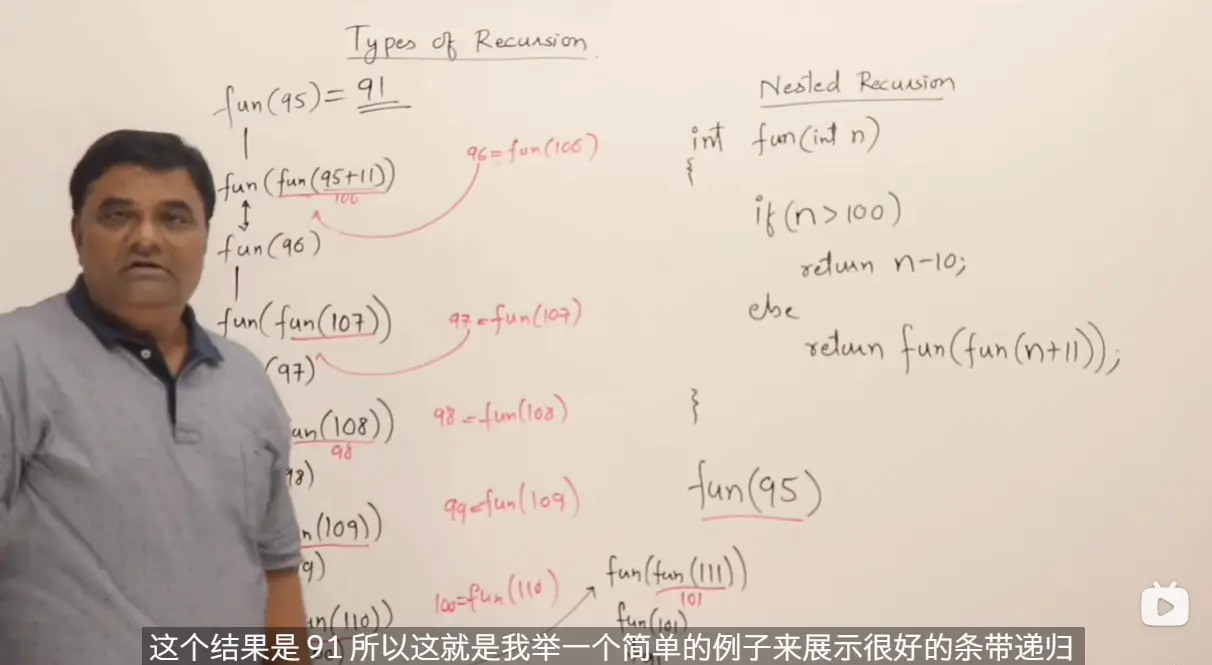 Types of Recursion
fun(95) = 91
fun(fun(95+11))
106
96=fun(106)
fun(96)
fun(fun(107))
97=fun(107)
(97)
un(108))
98
98=fun(108)
98)
n(109))
99=fun(109)
9)
un(110))
100=fun(110)
fun(fun(111))
101
fun(101)
Nested Recursion
int fun(int n)
{
if(n>100)
return n-10;
else
return fun(fun(n+11));
}
fun(95)
这个结果是 91 所以这就是我举一个简单的例子来展示很好的条带递归